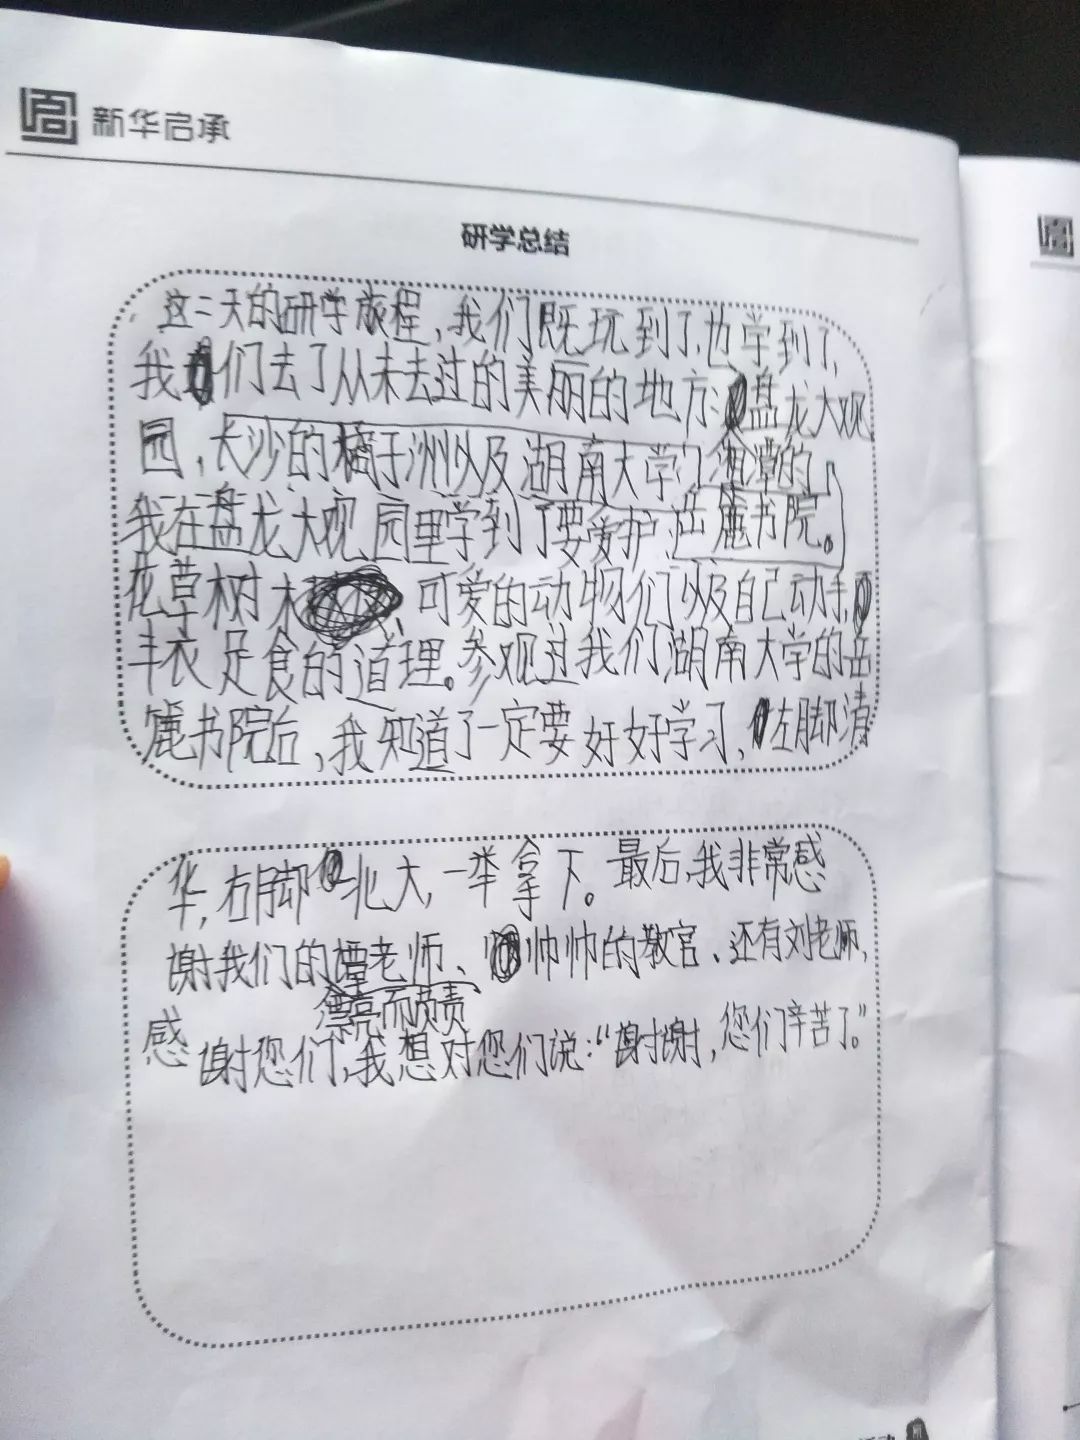 新华启承
研学总结
这二天的研学旅程，我们既玩到了，也学到了，
我们去了从未去过的美丽的地方：盘龙大观
园、长沙的橘子洲以及湖南大学门湘潭的
我在盘龙大观园里学到了要爱护 岳麓书院。
花草树木、可爱的动物们以及自己动手，
丰衣足食的道理。参观过我们湖南大学的岳
麓书院后，我知道了一定要好好学习，左脚清
华，右脚北大，一举拿下。最后，我非常感
谢我们的谭老师、帅帅的教官、还有刘老师，
漂亮而负责
感谢您们，我想对您们说：“谢谢，您们辛苦了。”